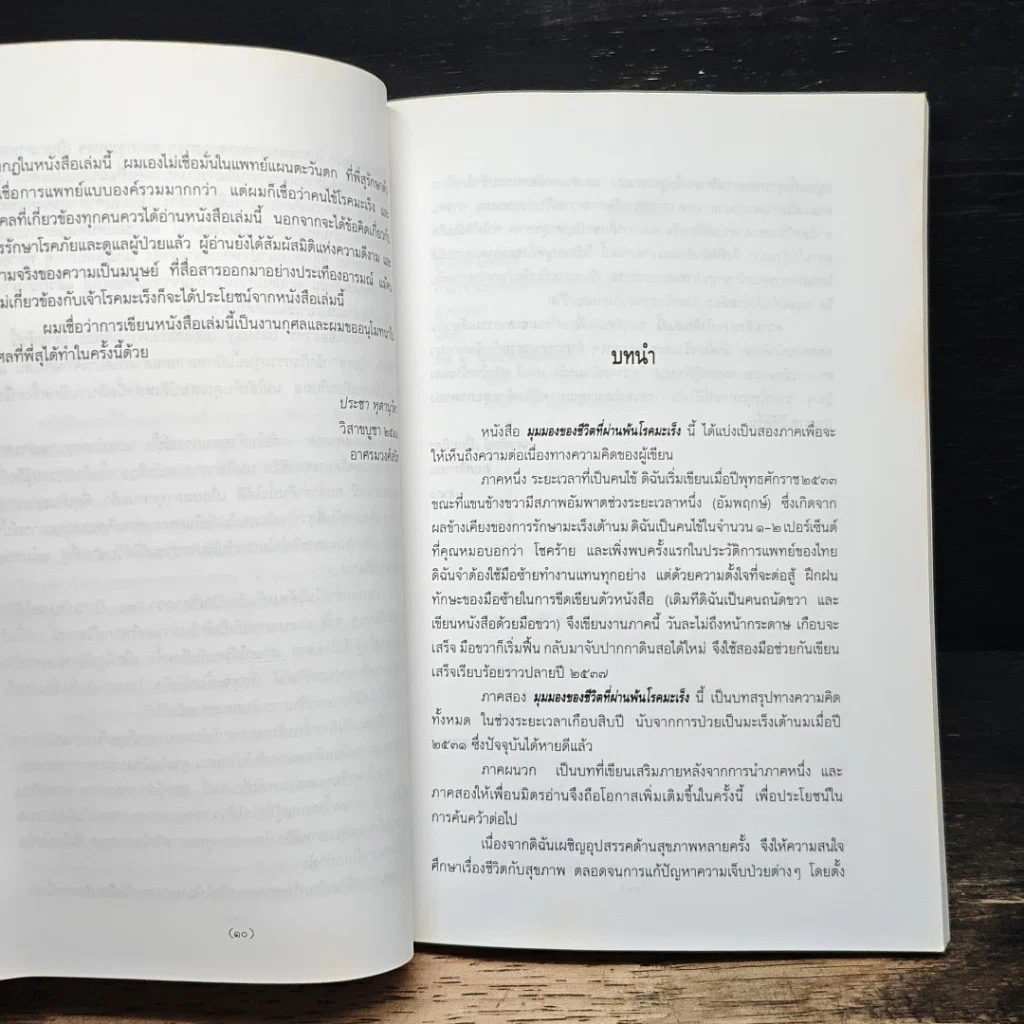 กฏในหนังสือเล่มนี้ ผมเองไม่เชื่อมั่นในแพทย์แผนตะวันตก ที่พี่สุรักษาตัว
เชื่อการแพทย์แบบองค์รวมมากกว่า แต่ผมก็เชื่อว่าคนไข้โรคมะเร็ง และ
คลที่เกี่ยวข้องทุกคนควรได้อ่านหนังสือเล่มนี้ นอกจากจะได้ข้อคิดเกี่ยวกับ
รรักษาโรคภัยและดูแลผู้ป่วยแล้ว ผู้อ่านยังได้สัมผัสมิติแห่งความดีงาม และ
ามจริงของความเป็นมนุษย์ ที่สื่อสารออกมาอย่างประเทืองอารมณ์ แม้คน
ม่เกี่ยวข้องกับเจ้าโรคมะเร็งก็จะได้ประโยชน์จากหนังสือเล่มนี้
ผมเชื่อว่าการเขียนหนังสือเล่มนี้เป็นงานกุศลและผมขออนุโมทนาใน
ศลที่พี่สุได้ทำในครั้งนี้ด้วย
ประชา หุตานุวัตร
วิสาขบูชา
อาศรมวงศ์สนิท
(๑๐)
บทนำ
หนังสือ มุมมองของชีวิตที่ผ่านพ้นโรคมะเร็ง นี้ ได้แบ่งเป็นสองภาคเพื่อจะ
ให้เห็นถึงความต่อเนื่องทางความคิดของผู้เขียน
ภาคหนึ่ง ระยะเวลาที่เป็นคนไข้ ดิฉันเริ่มเขียนเมื่อปีพุทธศักราช ๒๕๓๓
ขณะที่แขนข้างขวามีสภาพอัมพาตช่วงระยะเวลาหนึ่ง (อัมพฤกษ์) ซึ่งเกิดจาก
ผลข้างเคียงของการรักษามะเร็งเต้านม ดิฉันเป็นคนไข้ในจำนวน ๑-๒ เปอร์เซ็นต์
ที่คุณหมอบอกว่า โชคร้าย และเพิ่งพบครั้งแรกในประวัติการแพทย์ของไทย
ดิฉันจำต้องใช้มือซ้ายทำงานแทนทุกอย่าง แต่ด้วยความตั้งใจที่จะต่อสู้ ฝึกฝน
ทักษะของมือซ้ายในการขีดเขียนตัวหนังสือ (เดิมทีดิฉันเป็นคนถนัดขวา และ
เขียนหนังสือด้วยมือขวา) จึงเขียนงานภาคนี้ วันละไม่ถึงหน้ากระดาษ เกือบจะ
เสร็จ มือขวาก็เริ่มฟื้น กลับมาจับปากกาดินสอได้ใหม่ จึงใช้สองมือช่วยกันเขียน
เสร็จเรียบร้อยราวปลายปี ๒๕๓๗
ภาคสอง มุมมองของชีวิตที่ผ่านพ้นโรคมะเร็ง นี้ เป็นบทสรุปทางความคิด
ทั้งหมด ในช่วงระยะเวลาเกือบสิบปี นับจากการป่วยเป็นมะเร็งเต้านมเมื่อปี
๒๕๓๑ ซึ่งปัจจุบันได้หายดีแล้ว
ภาคผนวก เป็นบทที่เขียนเสริมภายหลังจากการนำภาคหนึ่ง และ
ภาคสองให้เพื่อนมิตรอ่านจึงถือโอกาสเพิ่มเติมขึ้นในครั้งนี้ เพื่อประโยชน์ใน
การค้นคว้าต่อไป
เนื่องจากดิฉันเผชิญอุปสรรคด้านสุขภาพหลายครั้ง จึงให้ความสนใจ
ศึกษาเรื่องชีวิตกับสุขภาพ ตลอดจนการแก้ปัญหาความเจ็บป่วยต่างๆ โดยตั้ง